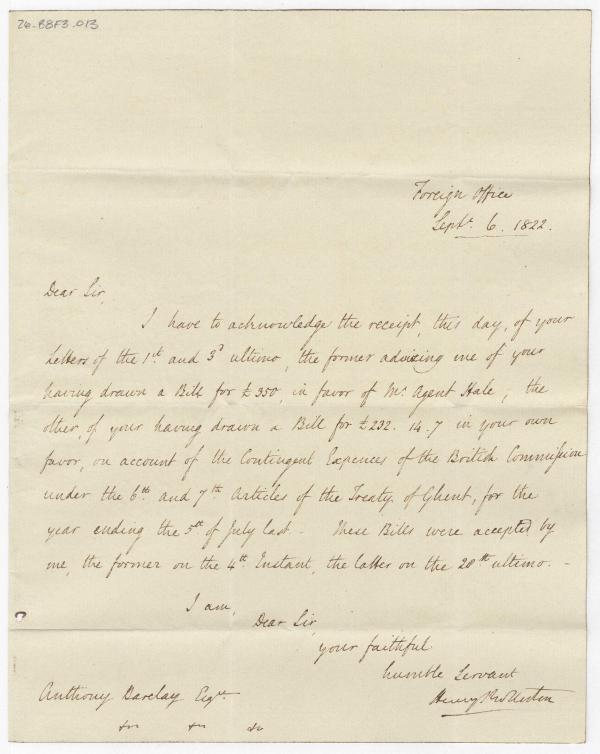 26-BBF3-013
Foreign Office
Septr. 6. 1822.
Dear Sir,
I have to acknowledge the receipt this day, of your
Letters of the 1st. and 3d ultimo, the former advizing me of your
having drawn a Bill for £350, in favor of Mr. Agent Hale, the
other, of your having drawn a Bill for £232. 14. 7 in your own
favor, on account of the Contingent Expences of the British Commission
under the 6th. and 7th. Articles of the Treaty of Ghent, for the
year ending the 5th. of July last. - These Bills were accepted by
me, the former on the 4th. Instant, the latter on the 28th ultimo. -
I am,
Dear Sir,
your faithful
humble Servant
Henry Rolleston
Anthony Barclay Esqre